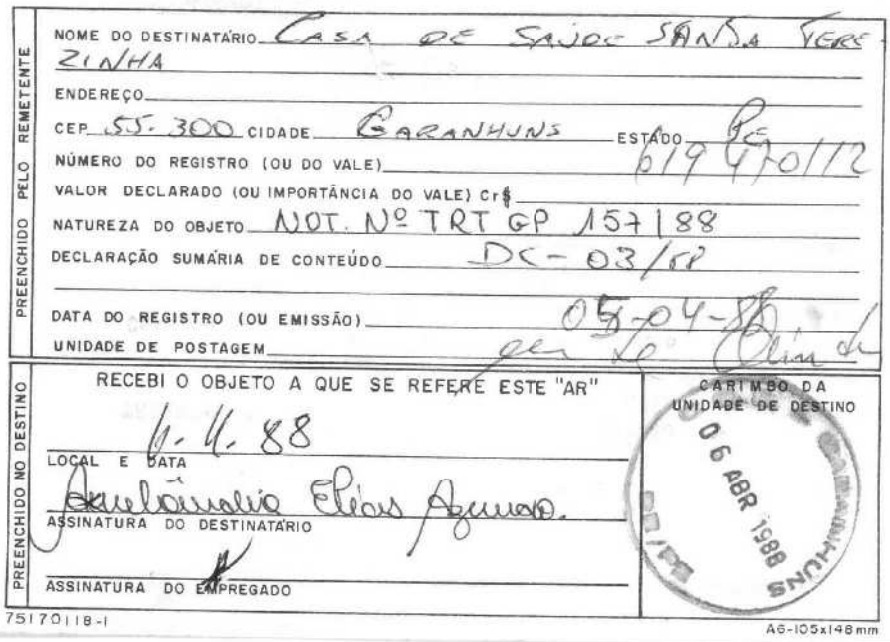 PREENCHIDO PELO REMETENTE
NOME DO DESTINATÁRIO CASA DE SAÚDE SANTA TERE
ZINHA
ENDEREÇO
CEP 55.300 CIDADE GARANHUNS ESTADO PE
NÚMERO DO REGISTRO (OU DO VALE) 619 470112
VALOR DECLARADO (OU IMPORTÂNCIA DO VALE) Cr$
NATUREZA DO OBJETO NOT. Nº TRT GP 157/88
DECLARAÇÃO SUMÁRIA DE CONTEÚDO DC-03/88
DATA DO REGISTRO (OU EMISSÃO) 05-04-88
UNIDADE DE POSTAGEM
PREENCHIDO NO DESTINO
RECEBI O OBJETO A QUE SE REFERE ESTE "AR"
88
LOCAL E DATA
Elias
ASSINATURA DO DESTINATÁRIO
ASSINATURA DO EMPREGADO
CARIMBO DA
UNIDADE DE DESTINO
GARANHUNS
06 ABR 1988
DR/PE
75170118-1
A6-105x148mm